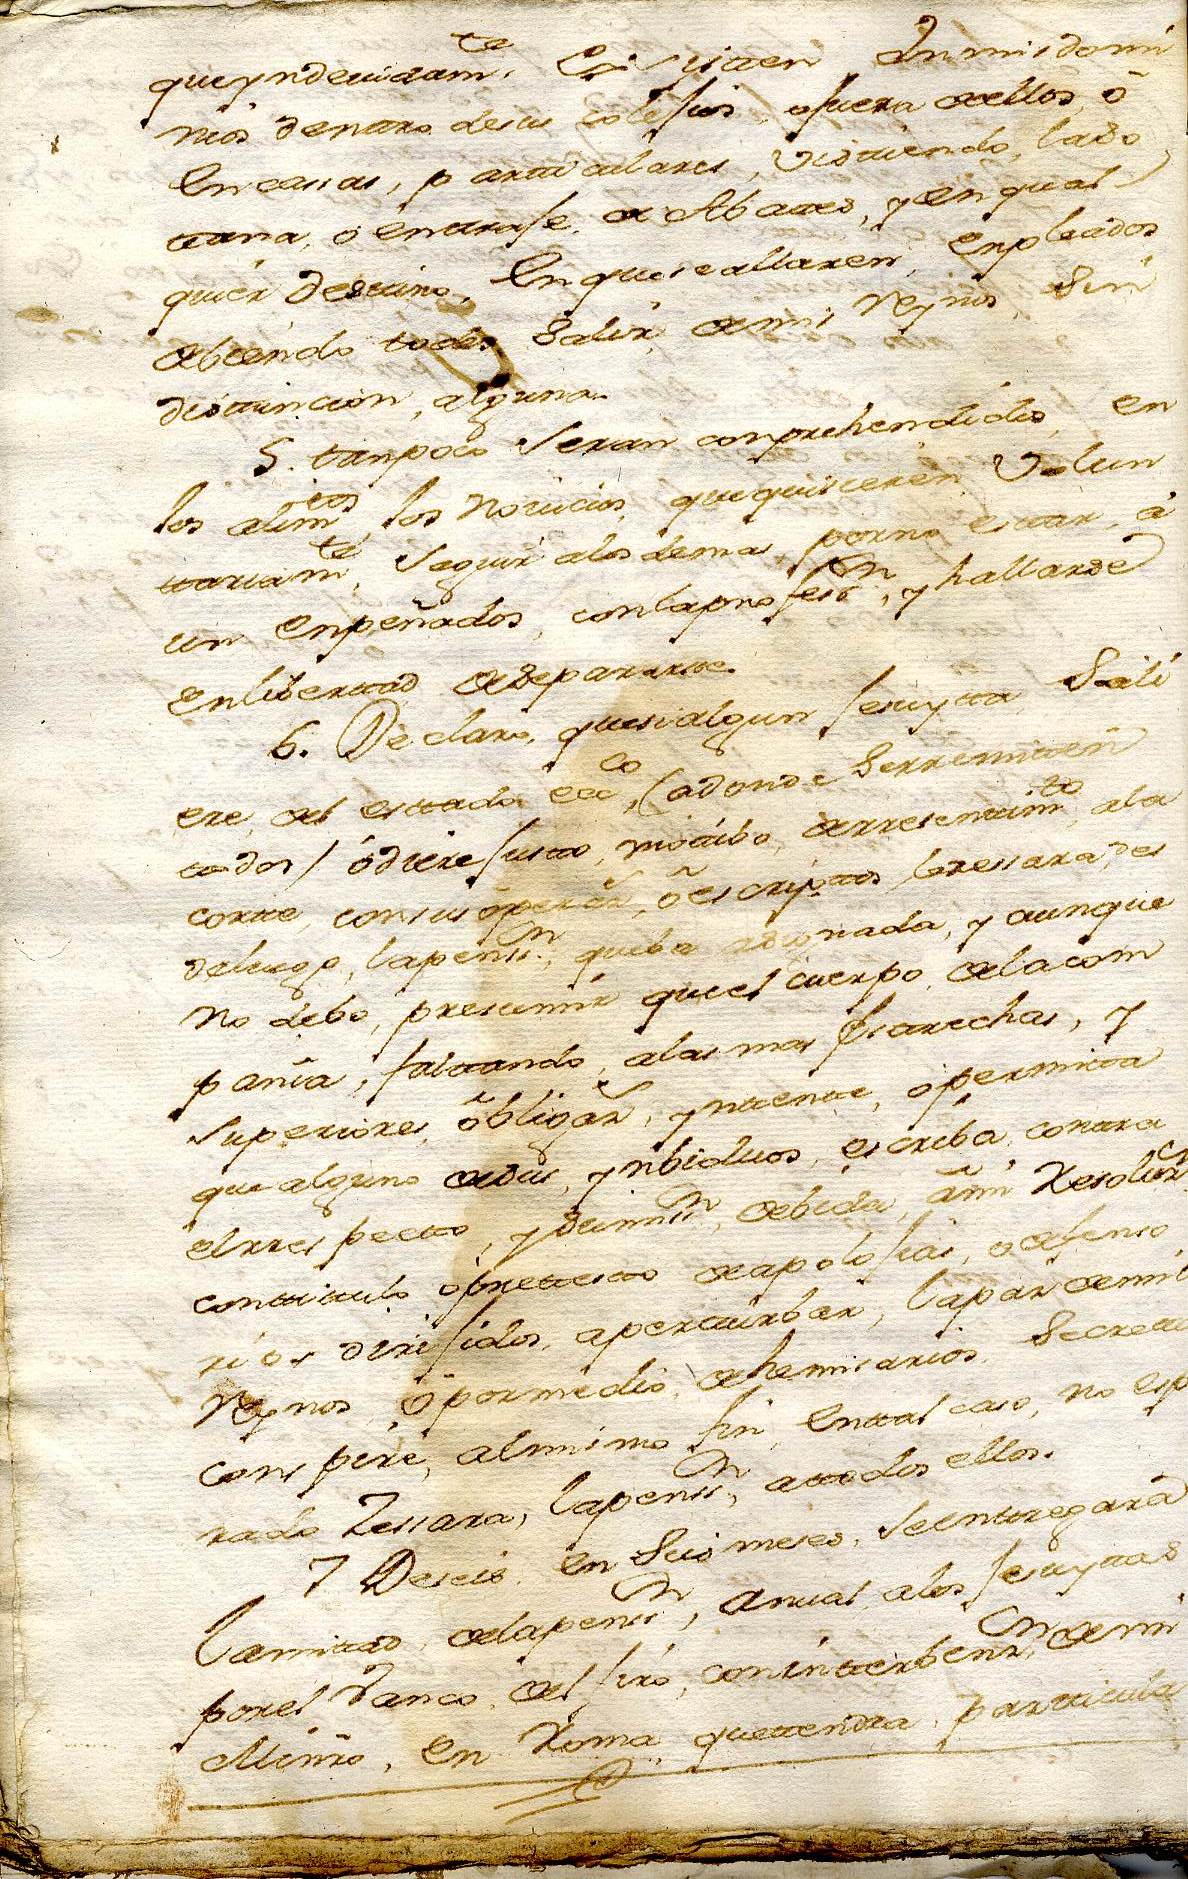 queyndevidamte. Existen En mis domi
nios dentro de sus colesios, ofuera dellos, ó
En cassas, particulares, Vistiendo, laso
tana, o entrase, de Abates, y en qual
quier Destino, En que se allaren, enpleados
debiendo todos Salir, de mis reynos, Sin
distincion, alguna.
5. tanpoco Seran conprehendidos, en
los alimtos, los Novicios, que quisieren Volun
tariamte, Seguir alos demas, porno estar, á
un enpeñados, con laprofesn, y hallarse
en libertad deseparirse.
6. Declaro, quesi algun Jesuytta Sali
ere, del estado ecco, (adonde Serremiten
todos) ó diere Justo, motibo, deresentimto ala
corte, con sus operan, o escriptos, lecessara, des
deluego, lapensn, queba asignada, y aunque
No debo, presumir que el cuerpo, dela com
pania, faltando, alas mas estrechas, y
Superiores, obligan, yntente, ó permita
que alguno desus, ynbiduos, escriba, contra
elrrespecto, y sumisn, debida, ami Resolucn
con titulo ó pretexto deapolosias, o defenso
rios dirisidos, aperturbar, lapaz demis
Reynos, ó pormedio, dehemisarios Secretos
conspire, almismo fin, En tal caso, no espe
rado Zessara, lapensn, attodos ellos.
7 Deseis, en Seis meses, Se entregara
Lamitad, delapensn, anual, alos Jesuyttas
por el Banco, del Jiro, con interbenn, demi
Minro, en Roma, quettendra particula